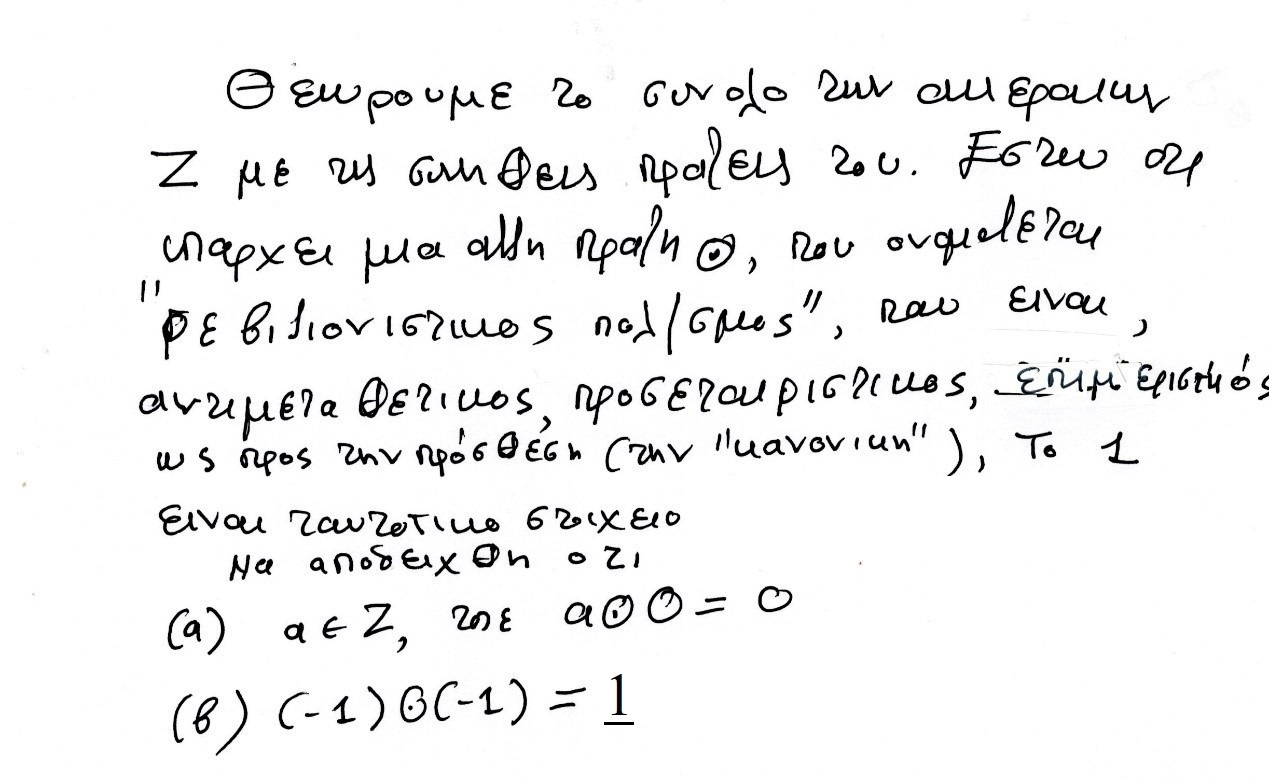 Θεωρουμε το συνολο των ακεραιων
Z με τις συνηθεις πραξεις του. Εστω οτι
υπαρχει μια αλλη πραξη ⊙, που ονομαζεται
"ρεβιζιονιστικος πολ/σμος", που ειναι,
αντιμεταθετικος, προσεταιριστικος, επιμεριστικός
ως προς την πρόσθέση (την "κανονικη"), Το 1
ειναι ταυτοτικο στοιχειο
Να αποδειχθη οτι
(α) a ∈ Z, τοτε a⊙0 = 0
(β) (-1)⊙(-1) = 1